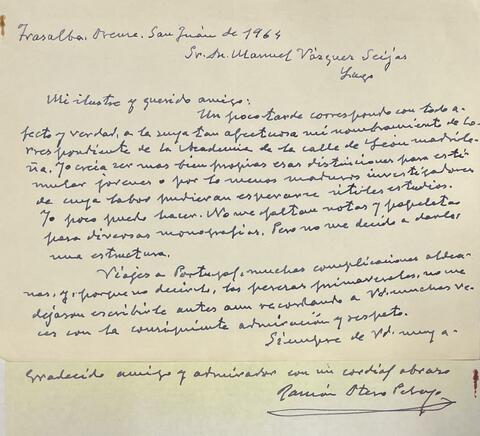 Trasalba. Orense. San Juán de 1964
Sr. Dn. Manuel Vázquez Seijas
Lugo
Mi ilustre y querido amigo:
Un poco tarde correspondo con todo a-
fecto y verdad, a la suya tan afectuosa mi nombramiento de Co-
rrespondiente de la Academia de la calle de León madrile-
ña. Yo creía ser mas bien propias esas distinciones para esti-
mular jóvenes o por lo menos maduros investigadores
de cuya labor pudieran esperarse útiles estudios.
Yo poco puedo hacer. No me faltan notas y papeletas
para diversas monografías. Pero no me decido a darles
una estructura.
Viajes a Portugal, muchas complicaciones aldea-
nas, y, porque no decirlo, las perezas primaverales, no me
dejaron escribirle antes aun recordando a Vd. muchas ve-
ces con la consiguiente admiración y respeto.
Siempre de Vd. muy a-
gradecido amigo y admirador con un cordial abrazo
Ramón Otero Pedrayo